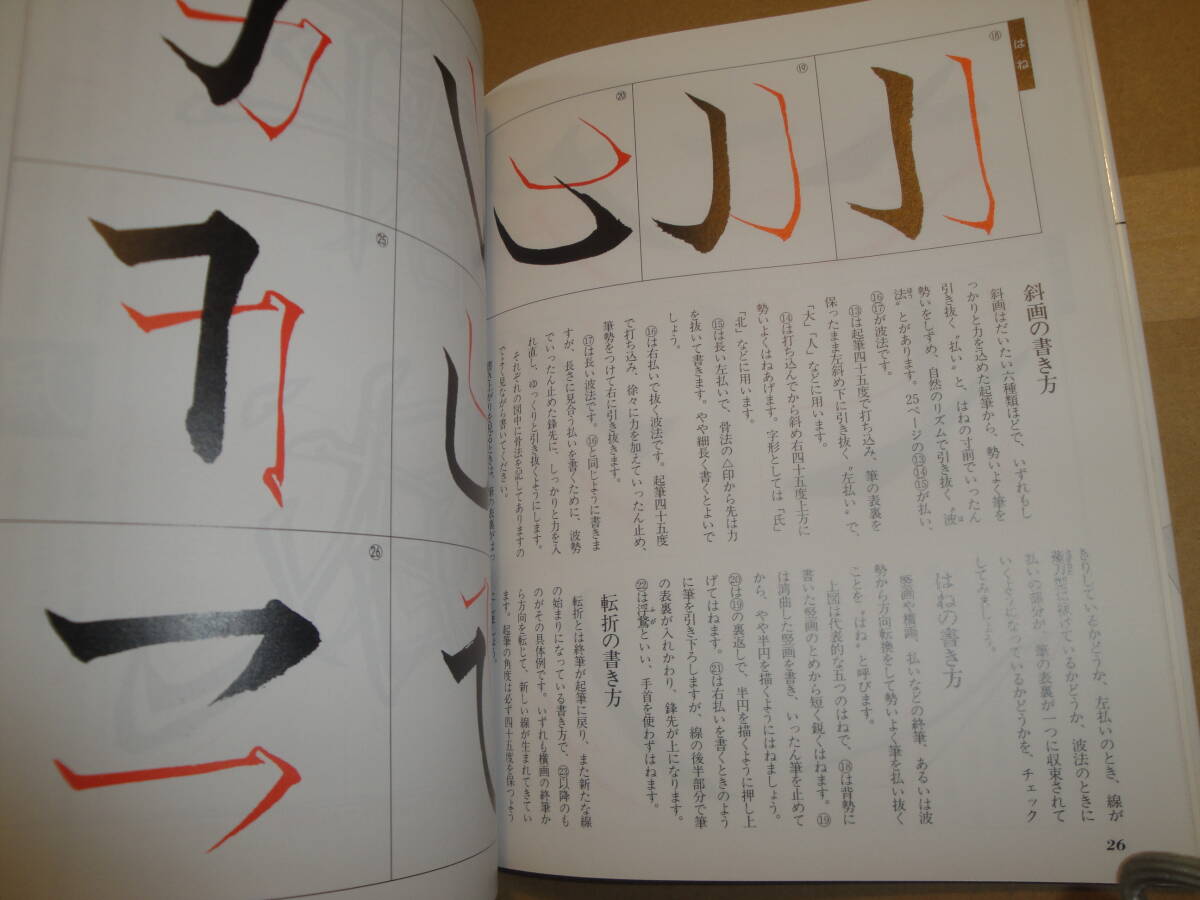 はね
⑱
⑲
⑳
斜画の書き方
斜画はだいたい六種類ほどで、いずれもし
っかりと力を込めた起筆から、勢いよく筆を
引き抜く〝払い〟と、はねの寸前でいったん
勢いをしずめ、自然のリズムで引き抜く〝波
法〟とがあります。25ページの⑬⑭⑮が払い、
⑯⑰が波法です。
⑬は起筆四十五度で打ち込み、筆の表裏を
保ったまま左斜め下に引き抜く〝左払い〟で、
「大」「人」などに用います。
⑭は打ち込んでから斜め右四十五度上方に
勢いよくはねあげます。字形としては「氏」
「北」などに用います。
⑮は長い左払いで、骨法の△印から先は力
を抜いて書きます。やや細長く書くとよいで
しょう。
⑯は右払いで抜く波法です。起筆四十五度
で打ち込み、徐々に力を加えていったん止め、
筆勢をつけて右に引き抜きます。
⑰は長い波法です。⑯と同じように書きま
すが、長さに見合う払いを書くために、波勢
でいったん止めた鋒先に、しっかりと力を入
れ直し、ゆっくりと引き抜くようにします。
それぞれの図中に骨法を記してありますの
でよく見ながら書いてください。
きりしているかどうか、左払いのとき、線が
いるかどうか、波法のときに
払いの部分が、筆の表裏が一つに収束されて
いくようになっているかどうかを、チェック
してみましょう。
はねの書き方
竪画や横画、払いなどの終筆、あるいは波
勢から方向転換をして勢いよく筆を払い抜く
ことを〝はね〟と呼びます。
上図は代表的な五つのはねで、⑱は背勢に
書いた竪画のとめから短く鋭くはねます。⑲
は湾曲した竪画を書き、いったん筆を止めて
から、やや半円を描くようにはねましょう。
⑳は⑲の裏返しで、半円を描くように押し上
げてはねます。㉑は右払いを書くときのよう
に筆を引き下ろしますが、線の後半部分で筆
の表裏が入れかわり、鋒先が上になります。
㉒は浮鵞といい、手首を使わずはねます。
転折の書き方
転折とは終筆が起筆に戻り、また新たな線
の始まりになっている書き方で、㉓以降のも
のがその具体例です。いずれも横画の終筆か
ら方向を転じて、新しい線が生まれてきてい
ます。起筆の角度は必ず四十五度を保つよう
26
㉕
㉖